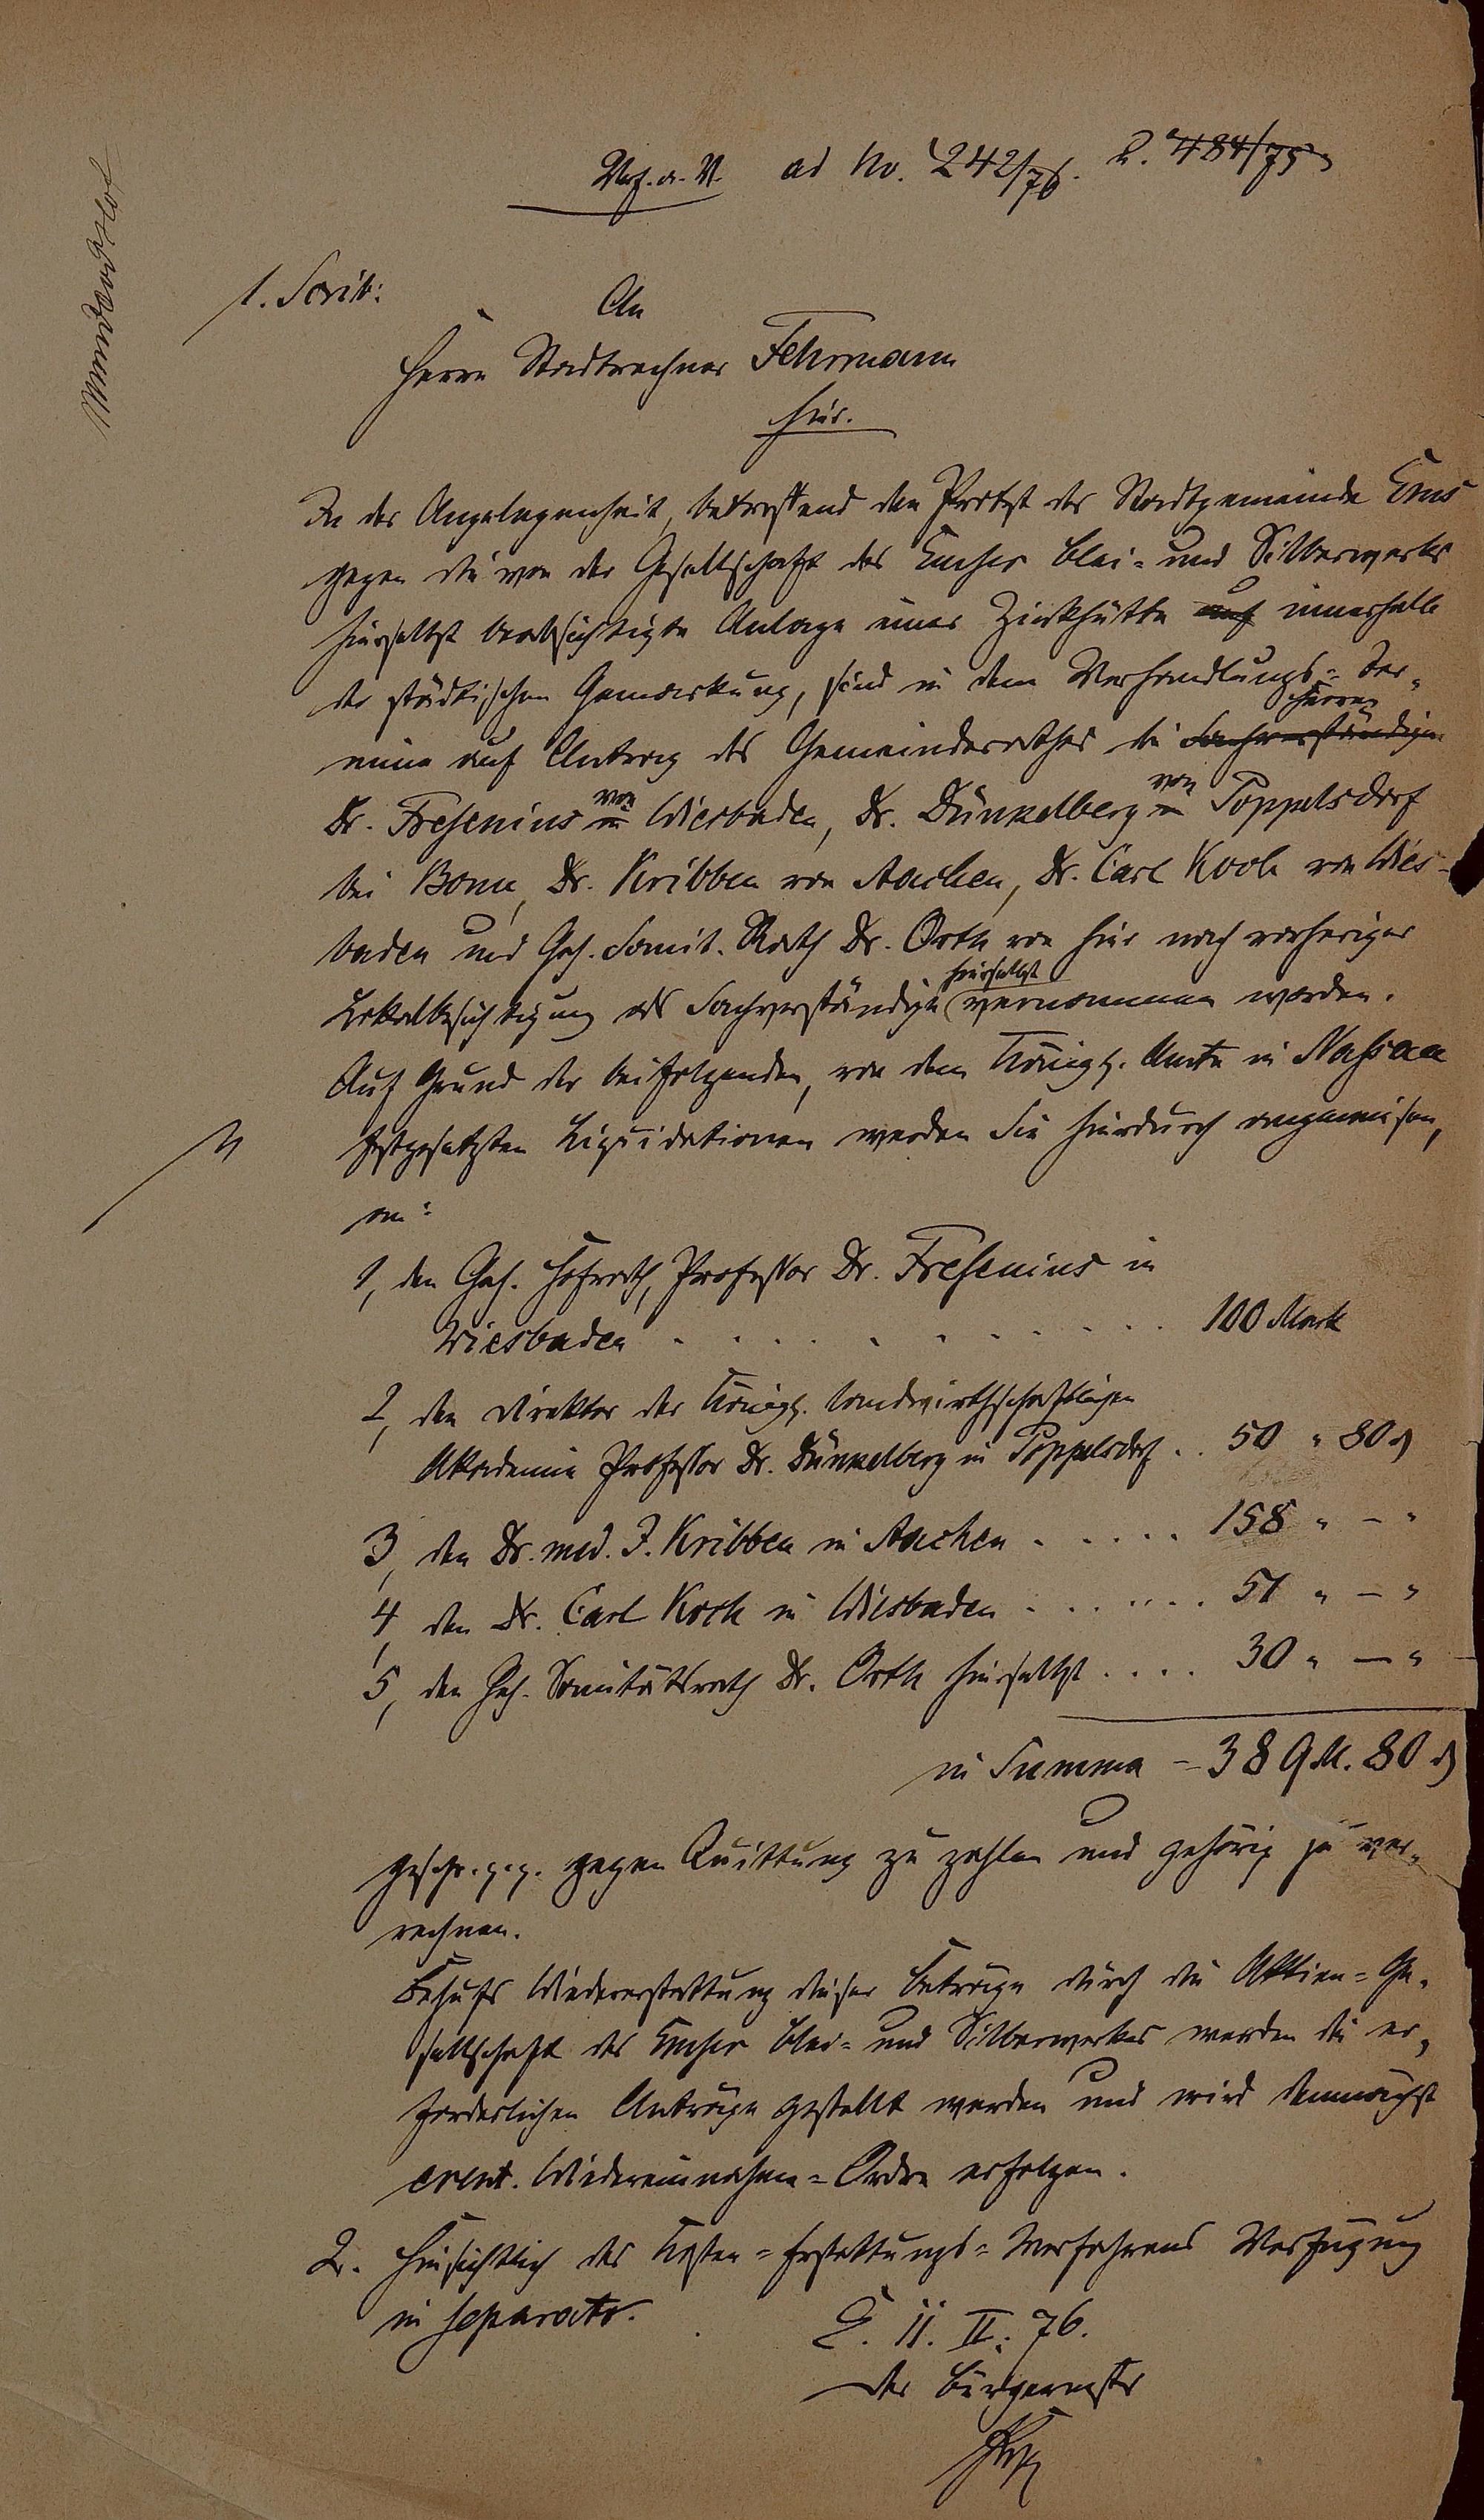 Vfg. a. N. ad No. 242/76. 2. 484/75
1. Scrib:
An
Herrn Stadtrechner Fehrmann
hier.
In der Angelegenheit, betreffend den Protest der Stadtgemeinde Ems
gegen die von der Gesellschaft des Emser Blei- und Silberwerks
hierselbst beabsichtigte Anlage einer Zinkhütte auf innerhalb
der städtischen Gemarkung, sind in dem Verhandlungs-Ter-
mine auf Antrag des Gemeinderathes die Sachverständigen Herren
Dr. Fresenius in von Wiesbaden, Dr. Dünkelberg in von Poppelsdorf
bei Bonn, Dr. Kribben von Aachen, Dr. Carl Koch von Wies-
baden und Geh. Sanit. Rath Dr. Orth von hier nach vorheriger
Lokalbesichtigung als Sachverständige hierselbst vernommen worden.
Auf Grund der beifolgenden, von dem Königl. Amte in Nassau
festgesetzten Liquidationen werden Sie hierdurch angewiesen,
an:
1, den Geh. Hofrath, Professor Dr. Fresenius in
Wiesbaden . . . . . . . . . . 100 Mark
2, den Direktor der Königl. landwirthschaftlichen
Akademie Professor Dr. Dünkelberg in Poppelsdorf . . 50 " 80 ₰
3, den Dr. med. J. Kribben in Aachen . . . . . 158 " — "
4, den Dr. Carl Koch in Wiesbaden . . . . . . . 51 " — "
5, den Geh. Sanitätsrath Dr. Orth hierselbst . . . . 30 " — "
in Summa = 389 M. 80 ₰
gegen Quittung zu zahlen und gehörig zu ver-
rechnen.
Behufs Wiedererstattung dieser Beträge durch die Aktien-Ge-
sellschaft des Emser Blei- und Silberwerkes werden die er-
forderlichen Anträge gestellt werden und wird demnächst
event. Wiedereinnahme-Ordre erfolgen.
2. Hinsichtlich des Kosten-Erstattungs-Verfahrens Verfügung
in separato.
E. 11. II. 76.
Der Bürgermstr